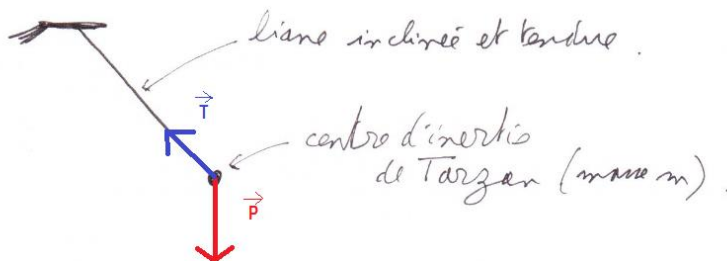 liane inclinée et tendue.
T
centre d'inertie
de Tarzan (masse m).
P